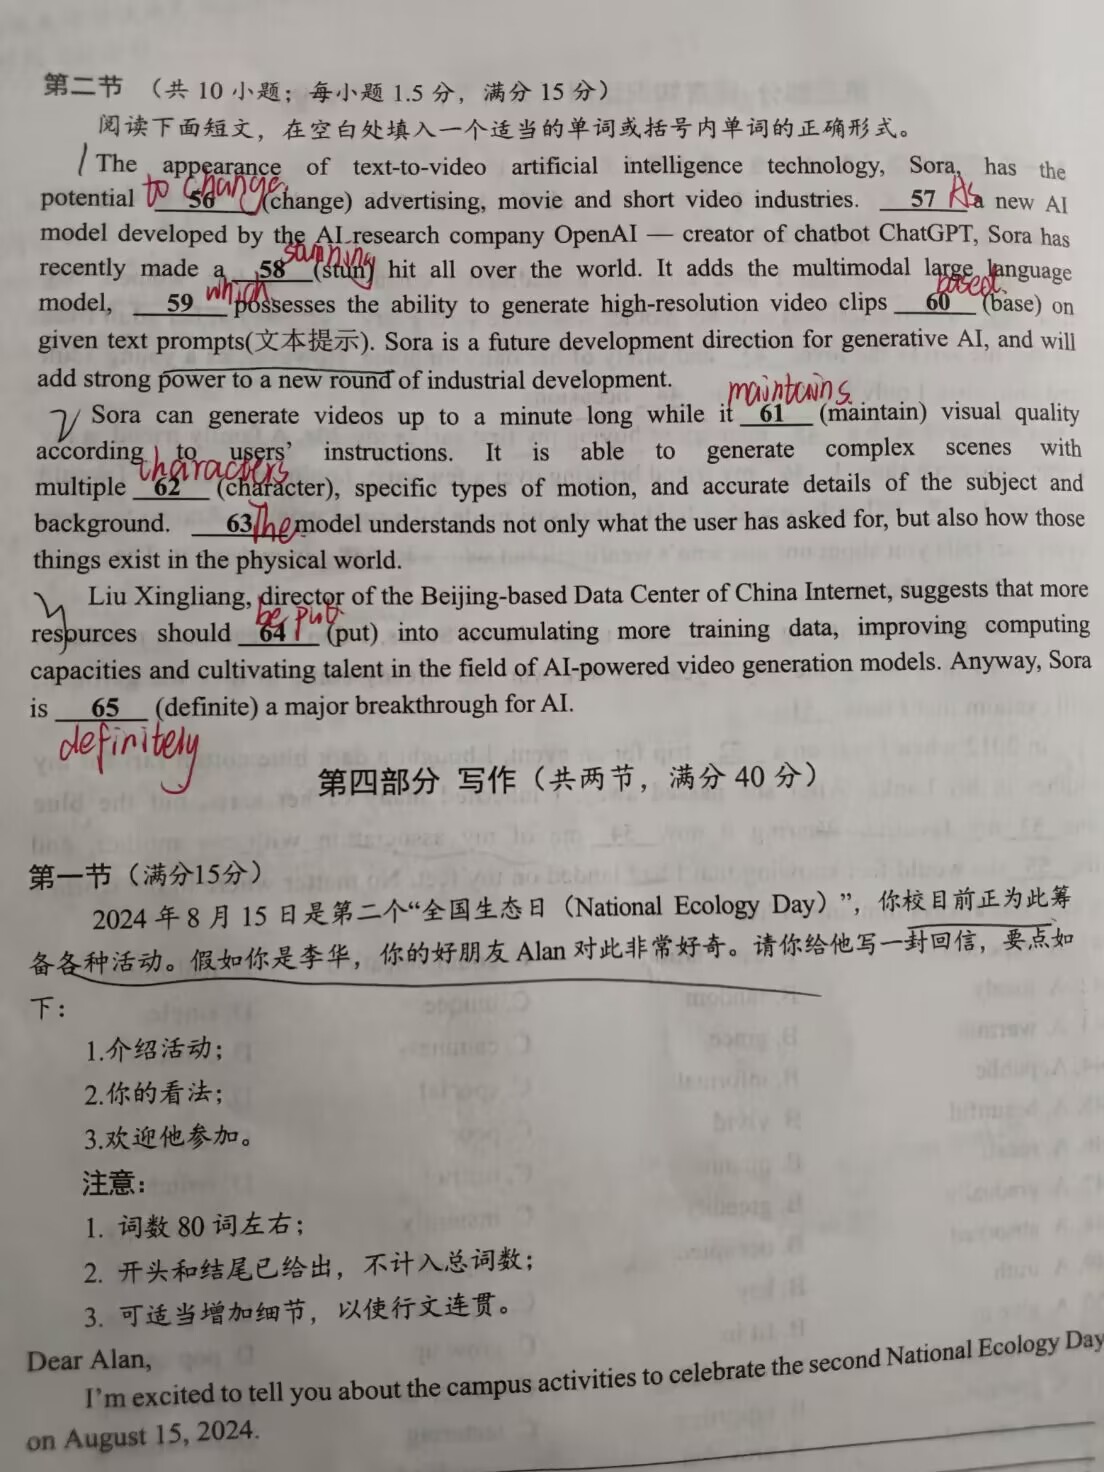 第二节 （共 10 小题；每小题 1.5 分，满分 15 分）
阅读下面短文，在空白处填入一个适当的单词或括号内单词的正确形式。
The appearance of text-to-video artificial intelligence technology, Sora, has the
to change As
potential 56 (change) advertising, movie and short video industries. 57 a new AI
model developed by the AI research company OpenAI — creator of chatbot ChatGPT, Sora has
recently made a 58 (stun) hit all over the world. It adds the multimodal large language
which based
model, 59 possesses the ability to generate high-resolution video clips 60 (base) on
given text prompts(文本提示). Sora is a future development direction for generative AI, and will
add strong power to a new round of industrial development.
maintains
Sora can generate videos up to a minute long while it 61 (maintain) visual quality
according to users' instructions. It is able to generate complex scenes with
characters
multiple 62 (character), specific types of motion, and accurate details of the subject and
background. 63 The model understands not only what the user has asked for, but also how those
things exist in the physical world.
Liu Xingliang, director of the Beijing-based Data Center of China Internet, suggests that more
be put
resources should 64 (put) into accumulating more training data, improving computing
capacities and cultivating talent in the field of AI-powered video generation models. Anyway, Sora
is 65 (definite) a major breakthrough for AI.
definitely
第四部分 写作（共两节，满分 40 分）
第一节（满分15分）
2024 年 8 月 15 日是第二个“全国生态日（National Ecology Day）”，你校目前正为此筹
备各种活动。假如你是李华，你的好朋友 Alan 对此非常好奇。请你给他写一封回信，要点如
下：
1.介绍活动；
2.你的看法；
3.欢迎他参加。
注意：
1. 词数 80 词左右；
2. 开头和结尾已给出，不计入总词数；
3. 可适当增加细节，以使行文连贯。
Dear Alan,
I'm excited to tell you about the campus activities to celebrate the second National Ecology Day
on August 15, 2024.